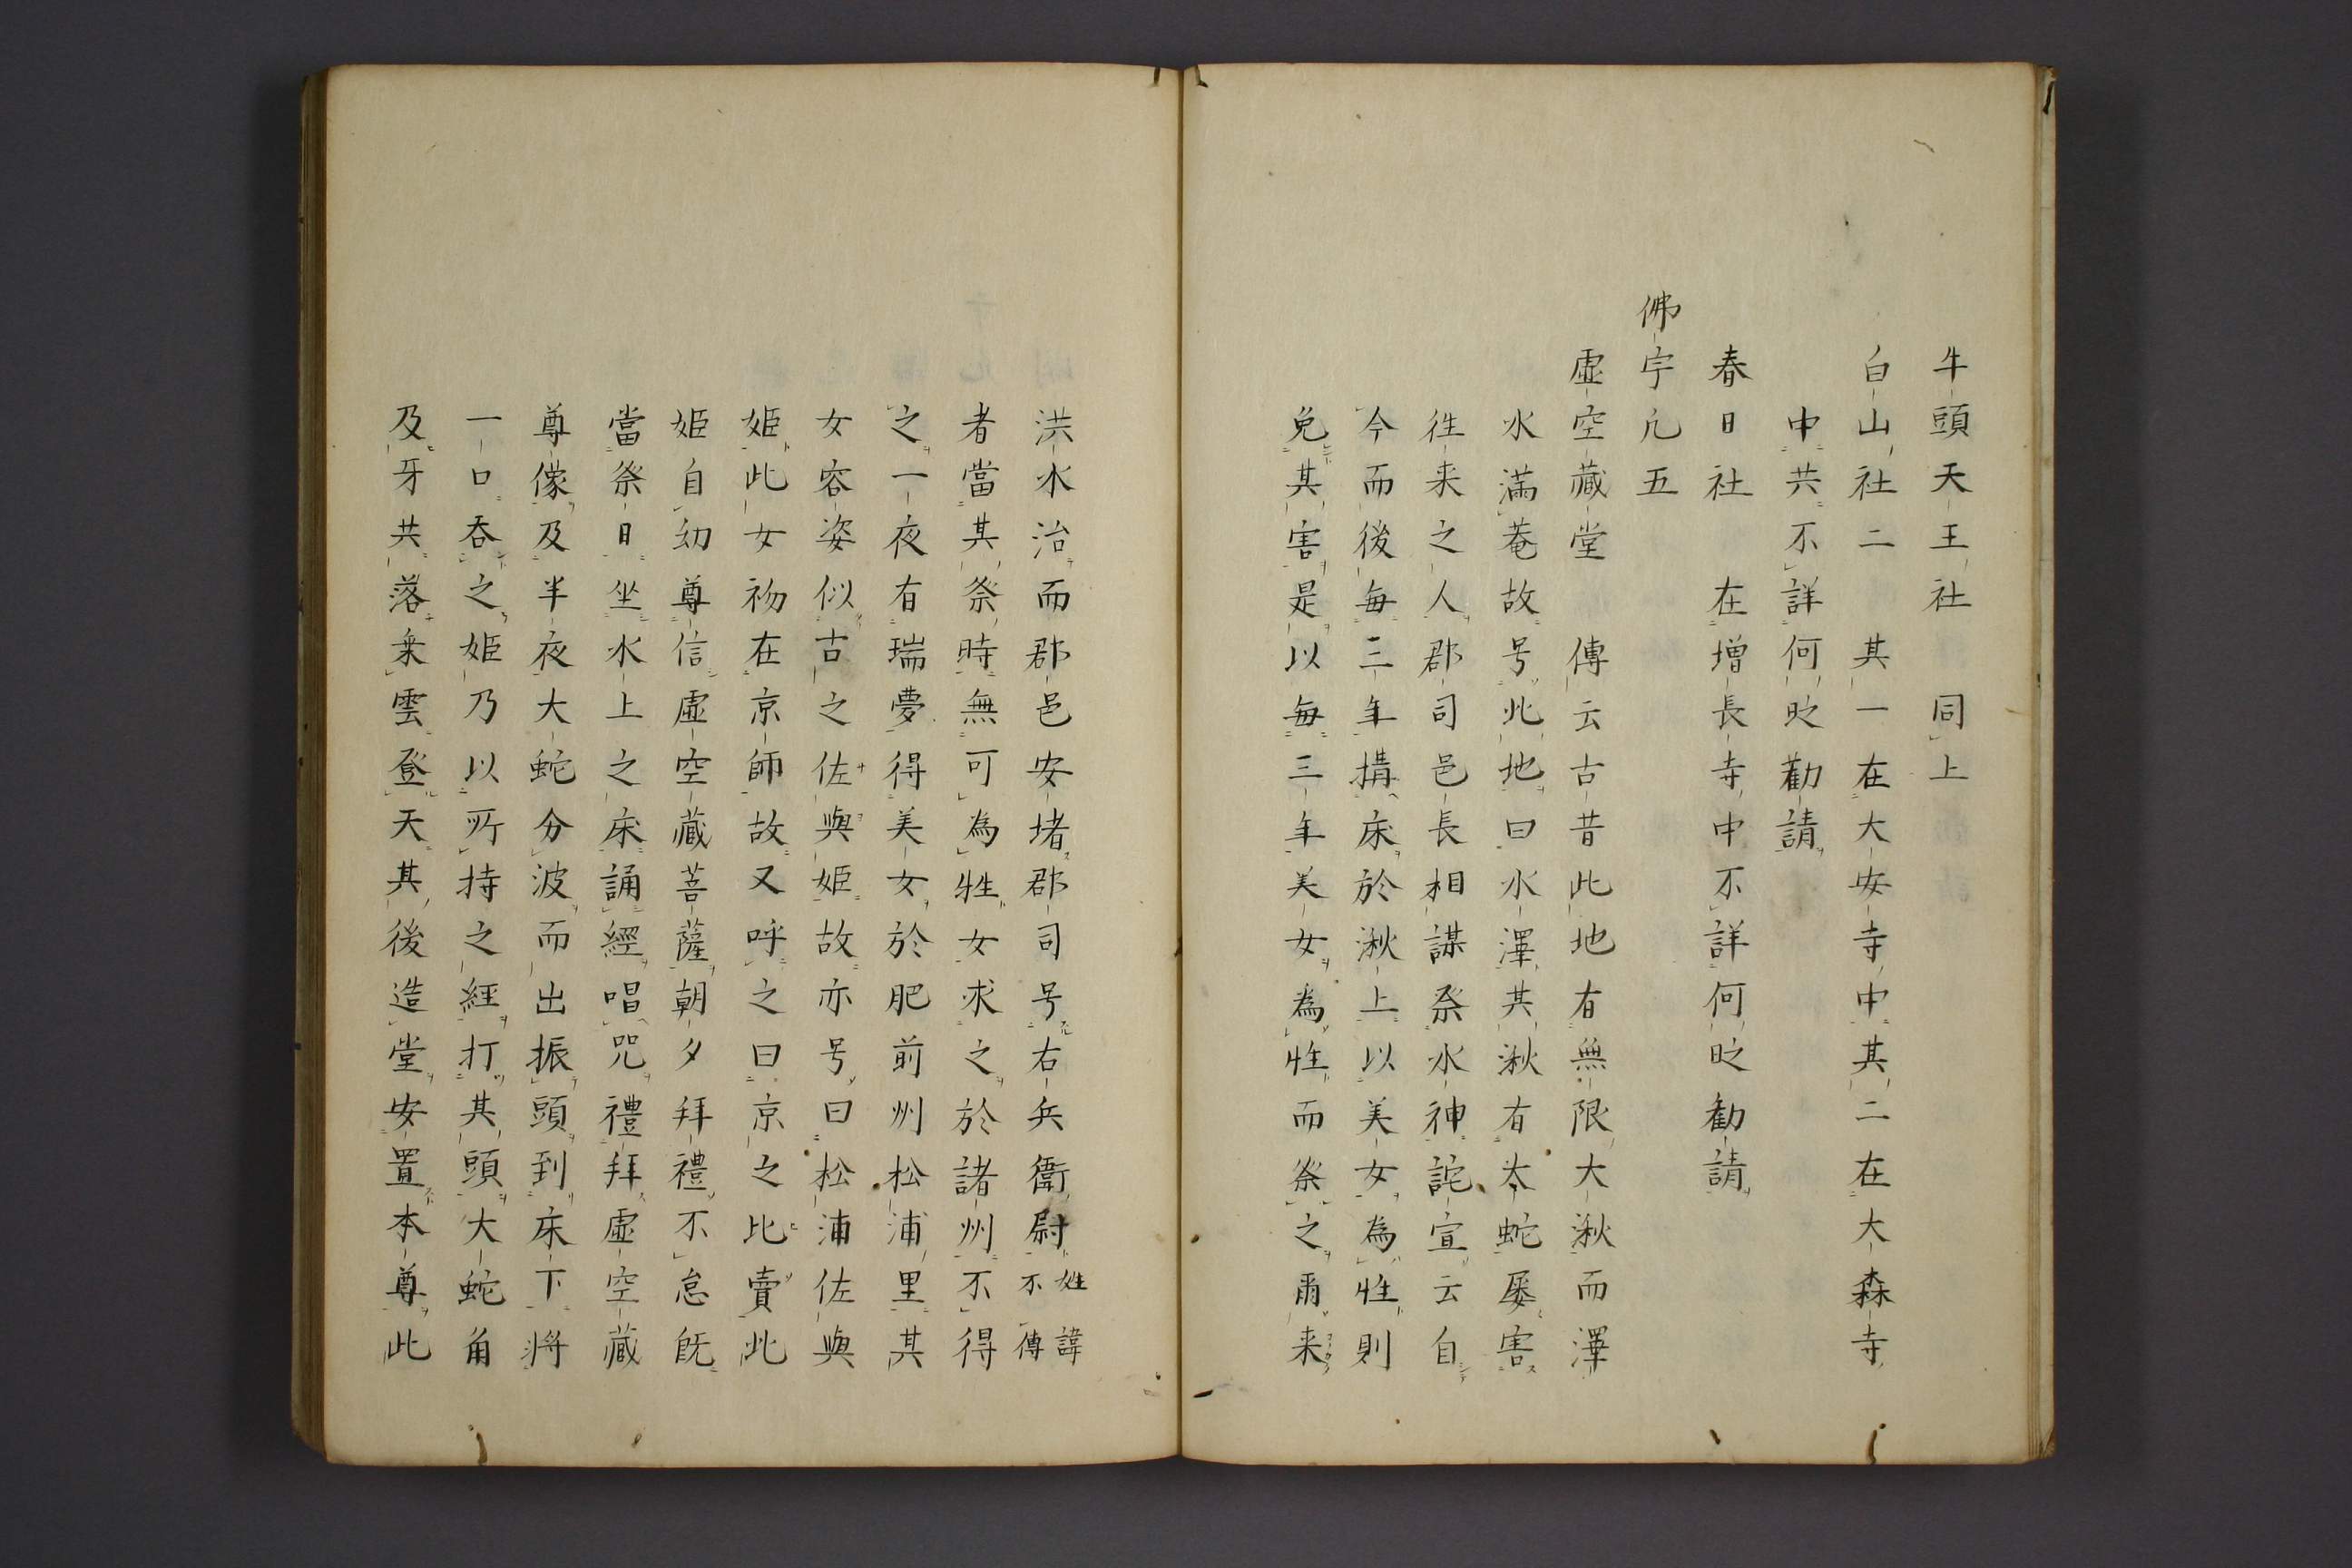 牛頭天王社　同上
白山社二　其一在大安寺中其二在大森寺
中共不詳何時勸請
春日社　在增長寺中不詳何時勸請
佛宇凢五
虚空藏堂　傳云古昔此地有無限大湫而澤
水滿菴故号此地曰水澤其湫有太蛇屡害
徃来之人郡司邑長相謀祭水神詫宣云自
今而後毎三年搆床於湫上以美女為牲則
免其害是以毎三年美女為牲而祭之甭来
洪水治而郡邑安堵郡司号右兵衞尉姓諱不傳
者當其祭時無可為牲女求之於諸州不得
之一夜有瑞夢得美女於肥前州松浦里其
女容姿似古之佐與姫故亦号曰松浦佐與
姫此女初在京師故又呼之曰京之比賣此
姫自幼尊信虚空藏菩薩朝夕拜禮不怠既
當祭日坐水上之床誦經唱咒禮拜虚空藏
尊像及半夜大蛇分波而出振頭到床下将
一口吞之姫乃以所持之経打其頭大蛇角
及牙共落乗雲登天其後造堂安置本尊此